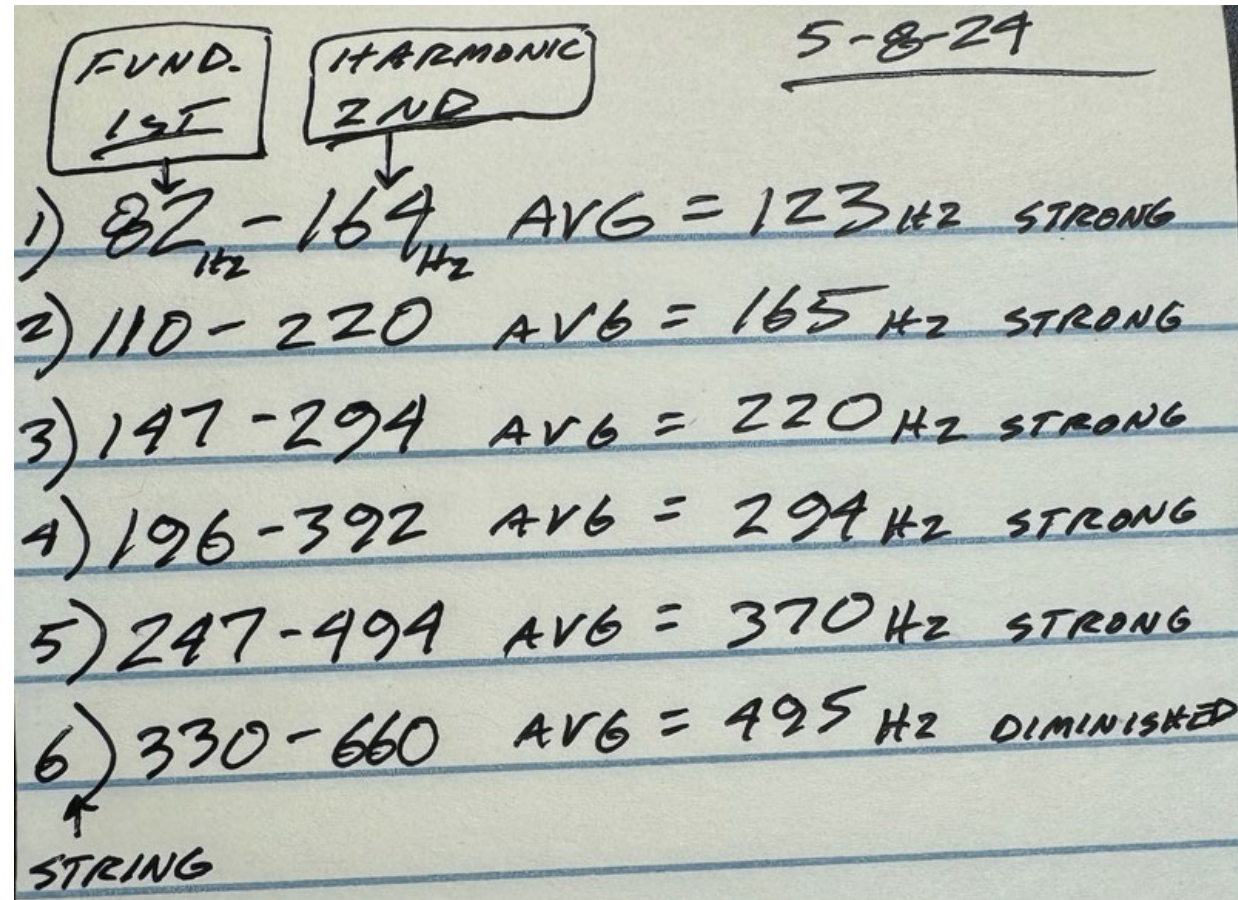 FUND. HARMONIC 5-8-24
1ST 2ND
1) 82Hz - 164Hz AVG = 123 Hz STRONG
2) 110 - 220 AVG = 165 Hz STRONG
3) 147 - 294 AVG = 220 Hz STRONG
4) 196 - 392 AVG = 294 Hz STRONG
5) 247 - 494 AVG = 370 Hz STRONG
6) 330 - 660 AVG = 495 Hz DIMINISHED
STRING